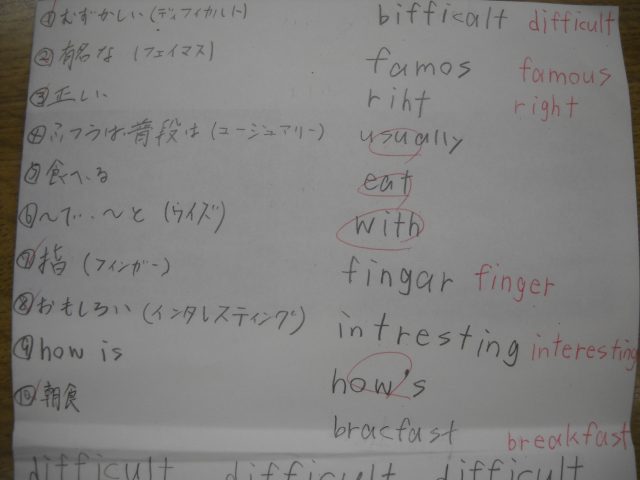 ①むずかしい(ディフィカルト) bifficalt difficult
②有名な (フェイマス) famos famous
③正しい riht right
④ふつうは普段は(ユージュアリー) usually
⑤食べる eat
⑥〜で…〜と (ウイズ) with
⑦指 (フィンガー) fingar finger
⑧おもしろい(インタレスティング) intresting interesting
⑨how is how's
⑩朝食 bracfast breakfast
difficult difficult difficult